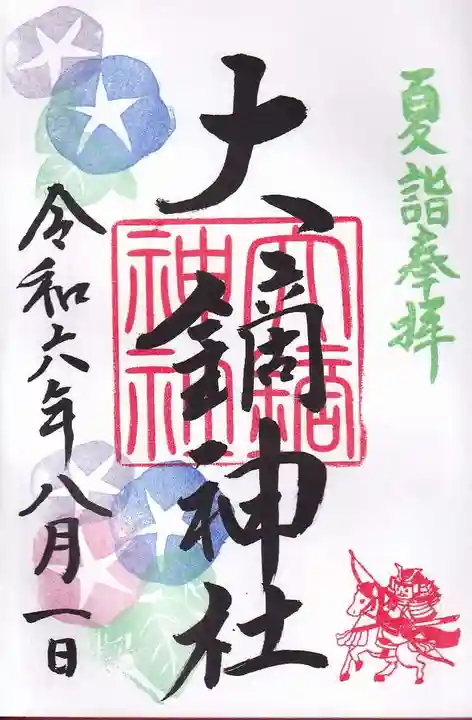 夏詣奉拝
大鏑神社
大鏑
神社
令和六年八月一日